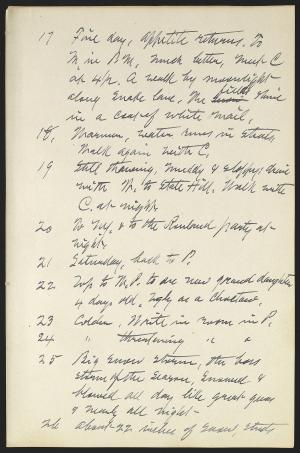 17 Fine day, appetite returns. To
M. in P.M., much better, meet C
at 4 P. A walk by moonlight
along Snake lane, the fields shine
in a coat of white mail.
18, Warmer, water runs in streets
Walk again with C.
19 Still thawing, muddy & sloppy; drive
with M. to State Hill. Walk with
C. at night.
20 To N.Y. & to the Rowland party at
night.
21 Saturday, back to P.
22 Up to W.P. to see new grand daughter
4 days old, ugly as a choctaw.
23 Colder. Write in room in P.
24 " threatening " " "
25 Big Snow Storm, the boss
storm of the season, snowed &
blowed all day like great guns
& nearly all night—
26 about 22 inches of snow,